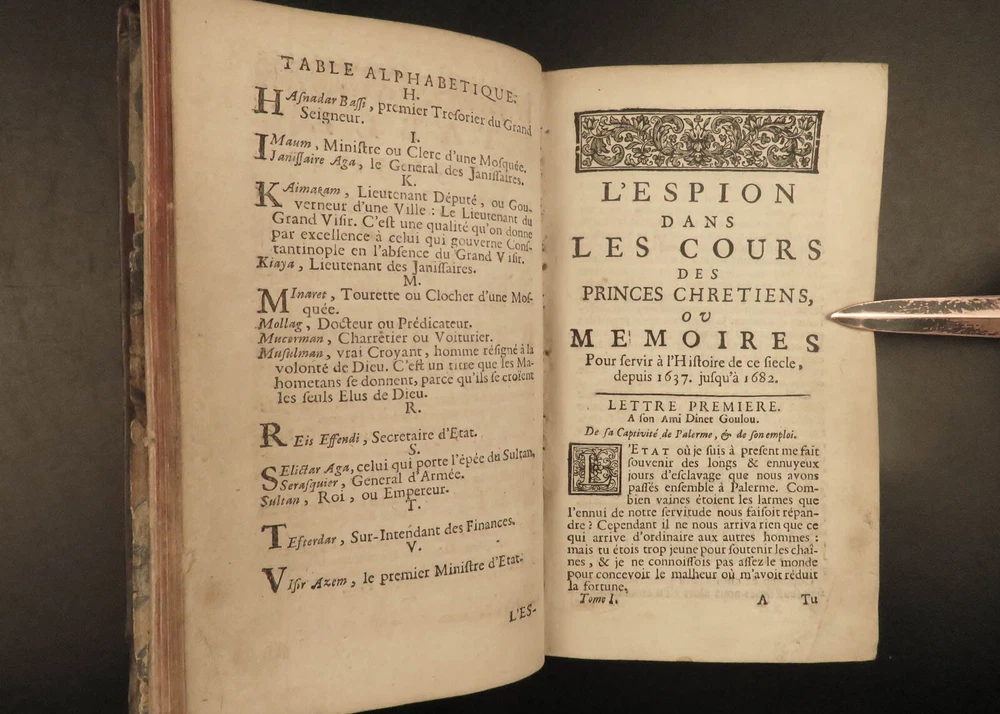 TABLE ALPHABETIQUE.
H.
HAſnadar Baſſi, premier Treſorier du Grand
Seigneur.
I.
IMaum, Miniſtre ou Clerc d'une Moſquée.
Janiſſaire Aga, le General des Janiſſaires.
K.
KAimakam, Lieutenant Député, ou Gou-
verneur d'une Ville : Le Lieutenant du
Grand Viſir. C'eſt une qualité qu'on donne
par excellence à celui qui gouverne Conſ-
tantinople en l'abſence du Grand Viſir.
Kiaya, Lieutenant des Janiſſaires.
M.
MInaret, Tourette ou Clocher d'une Moſ-
quée.
Mollag, Docteur ou Prédicateur.
Mucerman, Charrêtier ou Voiturier.
Muſulman, vrai Croyant, homme réſigné à la
volonté de Dieu. C'eſt un titre que les Ma-
hometans ſe donnent, parce qu'ils ſe croïent
les ſeuls Elus de Dieu.
R.
REis Effendi, Secretaire d'Etat.
S.
SElictar Aga, celui qui porte l'épée du Sultan,
Seraſquier, General d'Armée.
Sultan, Roi, ou Empereur.
T.
TEfterdar, Sur-Intendant des Finances.
V.
VIſir Azem, le premier Miniſtre d'Etat.
L'ES-
L'ESPION
DANS
LES COURS
DES
PRINCES CHRETIENS,
OU
MEMOIRES
Pour ſervir à l'Hiſtoire de ce ſiecle,
depuis 1637. juſqu'à 1682.
LETTRE PREMIERE.
A ſon Ami Dinet Goulou.
De ſa Captivité de Palerme, & de ſon emploi.
L'ETAT où je ſuis à preſent me fait
ſouvenir des longs & ennuyeux
jours d'eſclavage que nous avons
paſſés enſemble à Palerme. Com-
bien vaines étoient les larmes que
l'ennui de notre ſervitude nous faiſoit répan-
dre ? Cependant il ne nous arriva rien que ce
qui arrive d'ordinaire aux autres hommes :
mais tu étois trop jeune pour ſoutenir les chaî-
nes, & je ne connoiſſois pas aſſez le monde
pour concevoir le malheur où m'avoit réduit
la fortune,
Tome I. A Tu